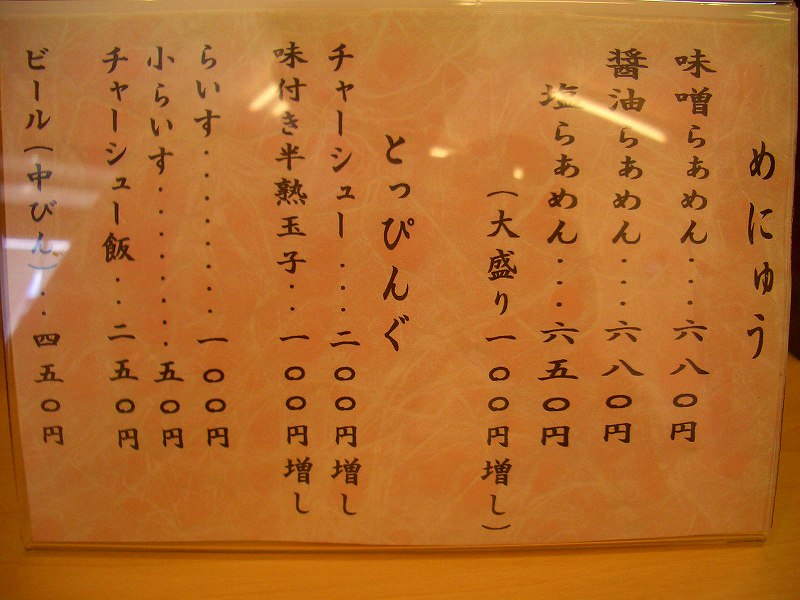 めにゅう
味噌らぁめん・・・六八〇円
醤油らぁめん・・・六八〇円
塩らぁめん・・・六五〇円
(大盛り 一〇〇円増し)
とっぴんぐ
チャーシュー・・・二〇〇円増し
味付き半熟玉子・・一〇〇円増し
らいす・・・・・・・・一〇〇円
小らいす・・・・・・・・・五〇円
チャーシュー飯・・二五〇円
ビール(中びん)・・四五〇円